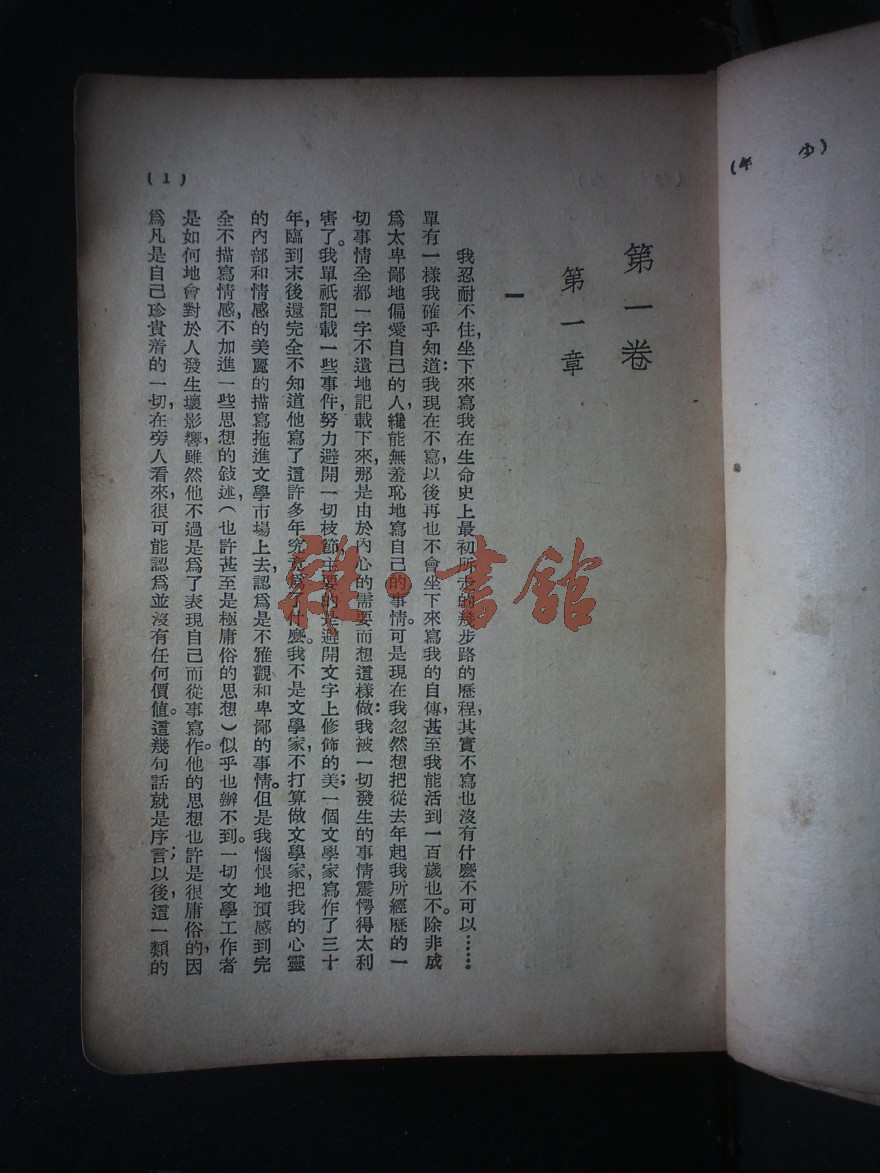 (少年)
第一卷
第一章
一
我忍耐不住，坐下來寫我在生命史上最初所走的幾步路的歷程，其實不寫也沒有什麼不可以……。
單有一樣我確乎知道：我現在不寫，以後再也不會坐下來寫我的自傳，甚至我能活到一百歲也不。除非成
爲太卑鄙地偏愛自己的人，纔能無羞恥地寫自己的事情。可是現在我忽然想把從去年起我所經歷的一
切事情全都一字不遺地記載下來，那是由於內心的需要而想這樣做：我被一切發生的事情震愕得太利
害了。我單祇記載一些事件，努力避開一切枝節，主要的是避開文字上修飾的美；一個文學家寫作了三十
年，臨到末後還完全不知道他寫了這許多年究竟爲了什麼。我不是文學家，不打算做文學家，把我的心靈
的內部和情感的美麗的描寫拖進文學市場上去，認爲是不雅觀和卑鄙的事情。但是我惱恨地預感到完
全不描寫情感，不加進一些思想的敍述，（也許甚至是極庸俗的思想）似乎也辦不到。一切文學工作者
是如何地會對於人發生壞影響，雖然他不過是爲了表現自己而從事寫作。他的思想也許是很庸俗的，因
爲凡是自己珍貴着的一切，在旁人看來，很可能認爲並沒有任何價值。這幾句話就是序言；以後，這一類的
(1)
雜·書館